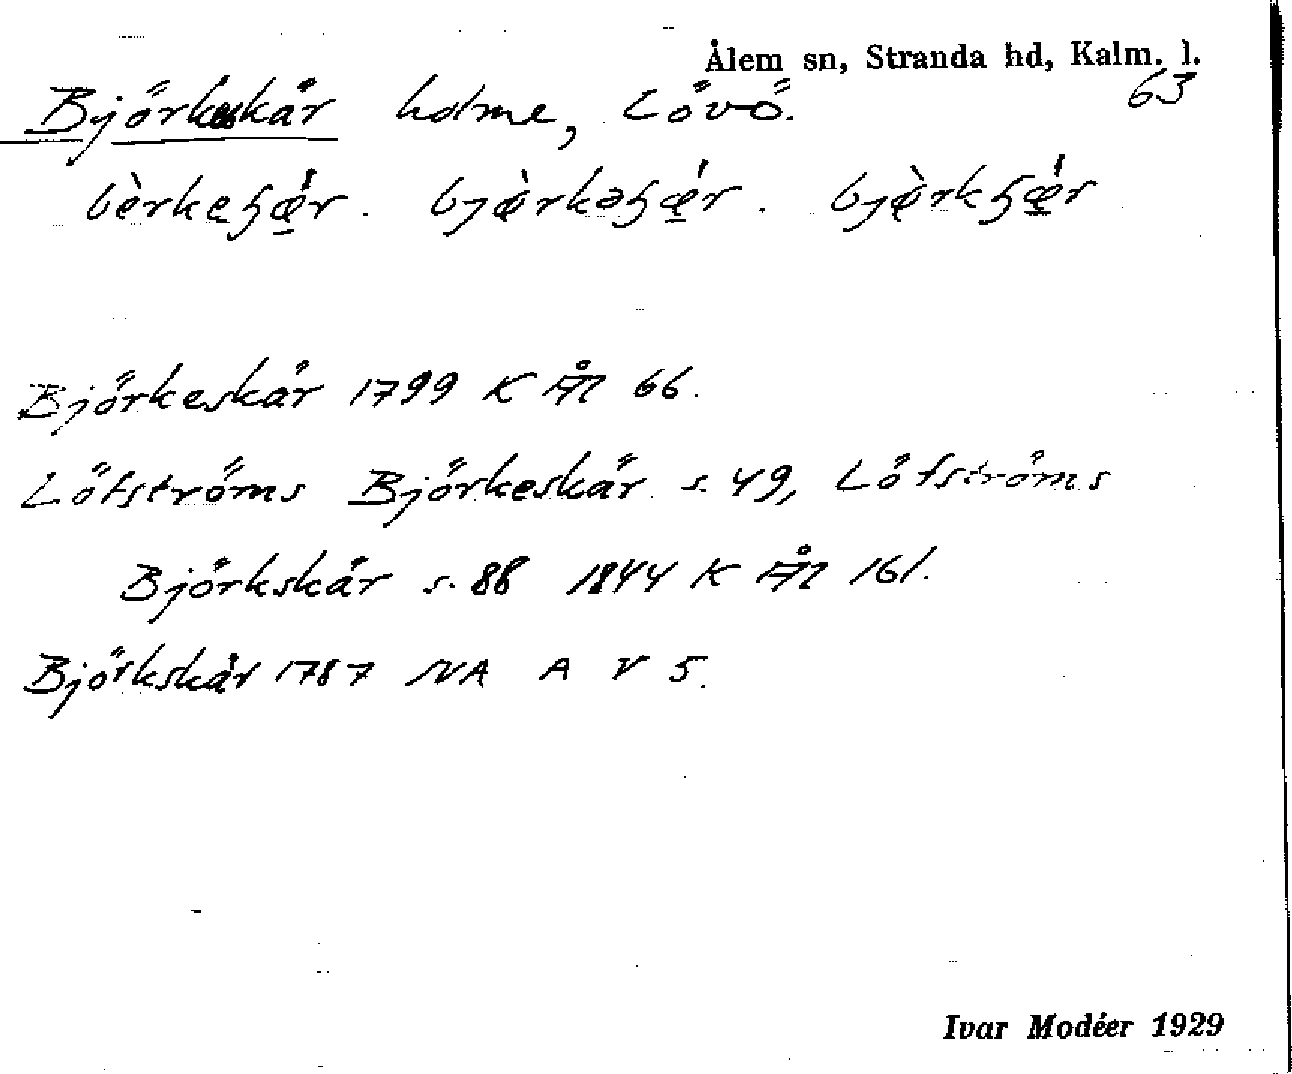 Ålem sn, Stranda hd, Kalm. l.
63
Björkeskär holme, Lövö.
bèrkeʂǽr. bjèrkəʂǽr. bjèrkʂǽr
Björkeskär 1799 K Ål 66.
Löfströms Björkeskär s. 49, Löfströms
Björkskär s. 88 1844 K Ål 161.
Björkskär 1787 NA A V 5.
Ivar Modéer 1929